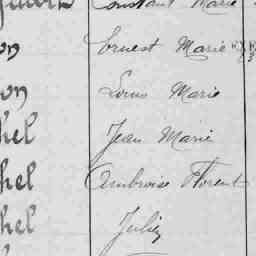 Constant Marie
on Ernest Marie
on Louis Marie
hel Jean Marie
hel Ambroise Florent
hel Julien